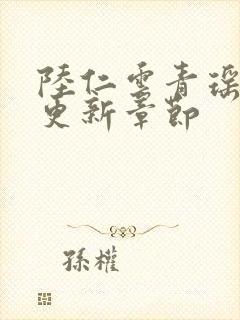 陸仁雲青瑶
更新章節
孫權